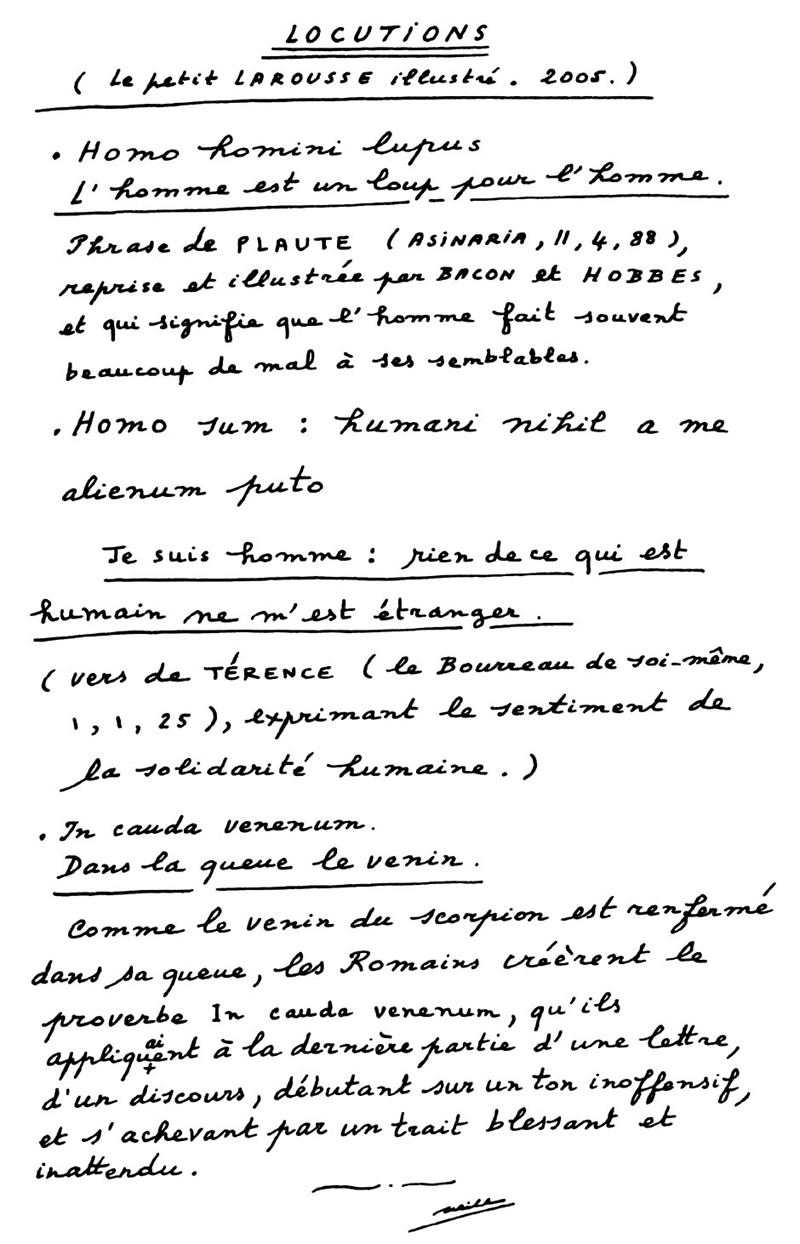 LOCUTIONS
( Le petit LAROUSSE illustré. 2005. )
• Homo homini lupus
L'homme est un loup pour l'homme.
Phrase de PLAUTE ( ASINARIA, II, 4, 88 ),
reprise et illustrée par BACON et HOBBES,
et qui signifie que l'homme fait souvent
beaucoup de mal à ses semblables.
• Homo sum : humani nihil a me
alienum puto
Je suis homme : rien de ce qui est
humain ne m'est étranger.
( vers de TÉRENCE ( le Bourreau de soi-même,
1, 1, 25 ), exprimant le sentiment de
la solidarité humaine. )
• In cauda venenum.
Dans la queue le venin.
Comme le venin du scorpion est renfermé
dans sa queue, les Romains créèrent le
proverbe In cauda venenum, qu'ils
appliquaient à la dernière partie d'une lettre,
d'un discours, débutant sur un ton inoffensif,
et s'achevant par un trait blessant et
inattendu.